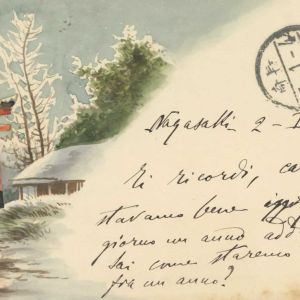 Nagasaki 2-
Ti ricordi, ca
stavamo bene oggi
giorno un anno ad
Sai come staremo
fra un anno?